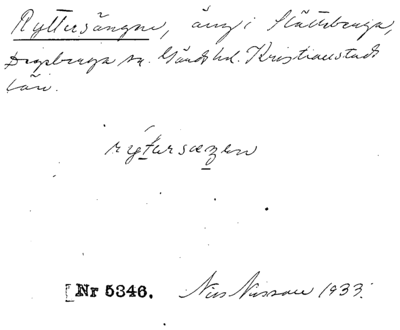 Ryttersängen, äng i Slätteberga,
Degeberga sn. Gärds hd. Kristianstads
län.
rýtersæŋen
[Nr 5346. Nils Nilsson 1933.